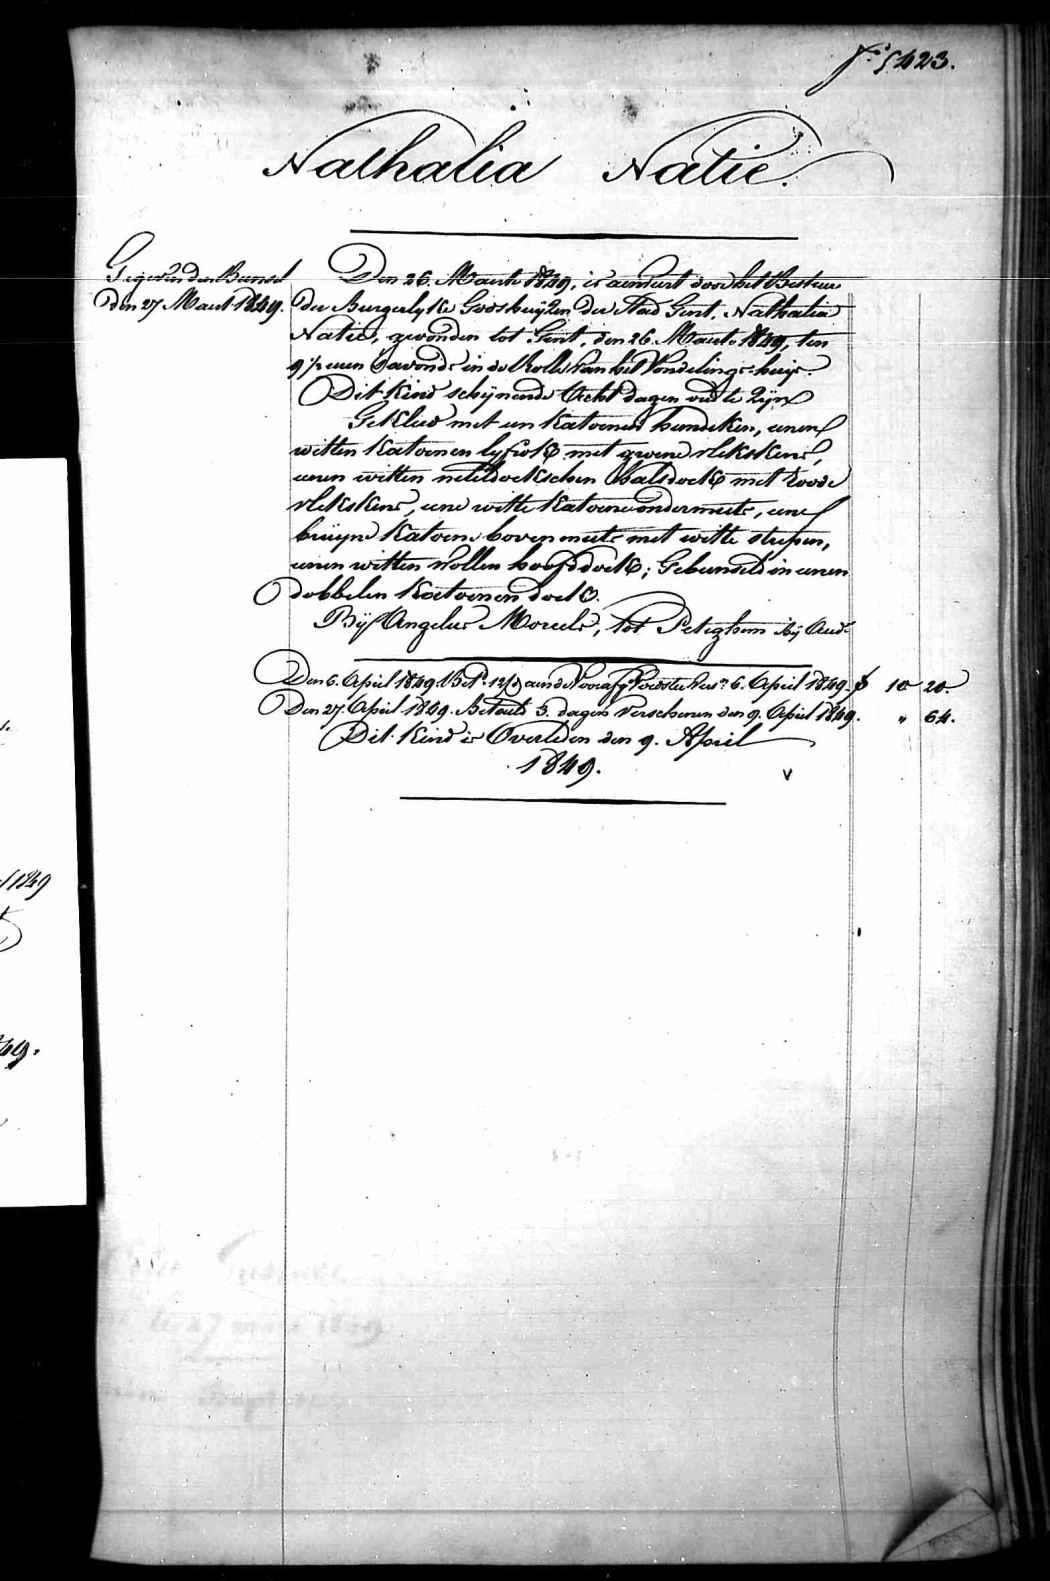 f° 423.
Nathalia Natie.
Gegeven den Bunsel
den 27 Maert 1849.
Den 26. Maerte 1849, is aenveirt door het Bestuer
der Burgerlyke Godshuyzen der Stad Gent, Nathalia
Natie, gevonden tot Gent, den 26. Maerte 1849, ten
9 ½ euren s'avonds in de Rolle van het Vondelings-huys.
Dit Kind schynende Acht dagen oud te Zyn
Gekleed met een Katoenen hemdeken, eenen
witten Katoenen lyfrok met groene vlekskens,
eenen witten neteldoekschen halsdoek met roode
vlekskens, eene witte Katoene ondermuts, eene
bruyne Katoene bovenmuts met witte strepen,
eenen witten Wollen hoofddoek; Gebunseld in eenen
dobbelen Katoenen doek.
By Angelus Moreels, tot Peteghem by Aud.
Den 6. April 1849. Bet. 12 aen de Voedster 6. April 1849. f 10 20.
Den 27. April 1849. Betaeld 3. dagen Verschenen den 9. April 1849. " 64.
Dit Kind is Overleden den 9. April
1849.
v
1849
49.